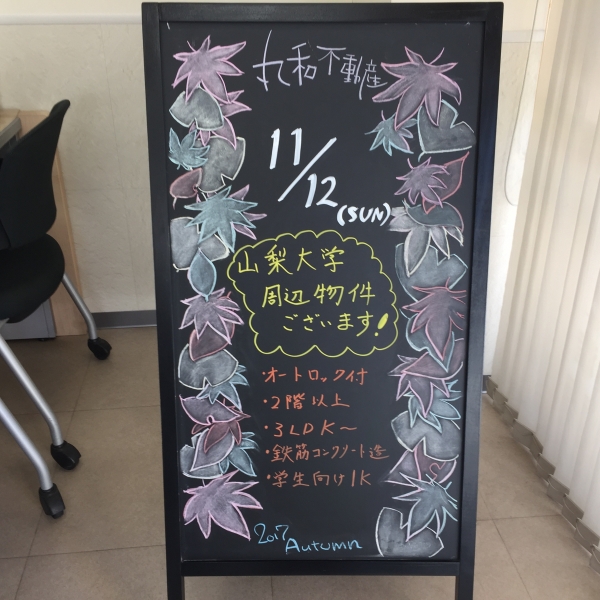 丸和不動産
11/12
(SUN)
山梨大学
周辺物件
ございます!
・オートロック付
・2階以上
・3LDK〜
・鉄筋コンクリート造
・学生向け1K
2017 Autumn